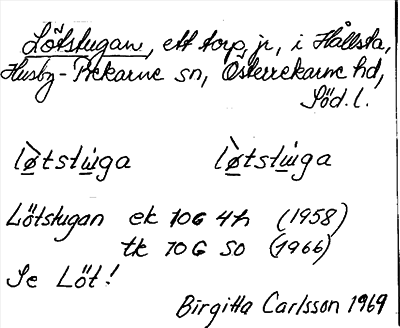 Lötstugan, ett torp, jr, i Hållsta,
Husby-Rekarne sn, Österrekarne hd,
Söd. l.
lø̀tstu̇ga lø̀tstu̇ga
Lötstugan ek 10G 4h (1958)
tk 10G SO (1966)
Se Löt!
Birgitta Carlsson 1969